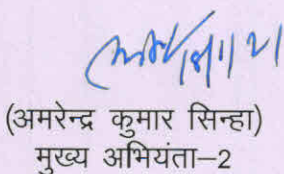 18/1/21
(अमरेन्द्र कुमार सिन्हा)
मुख्य अभियंता–2